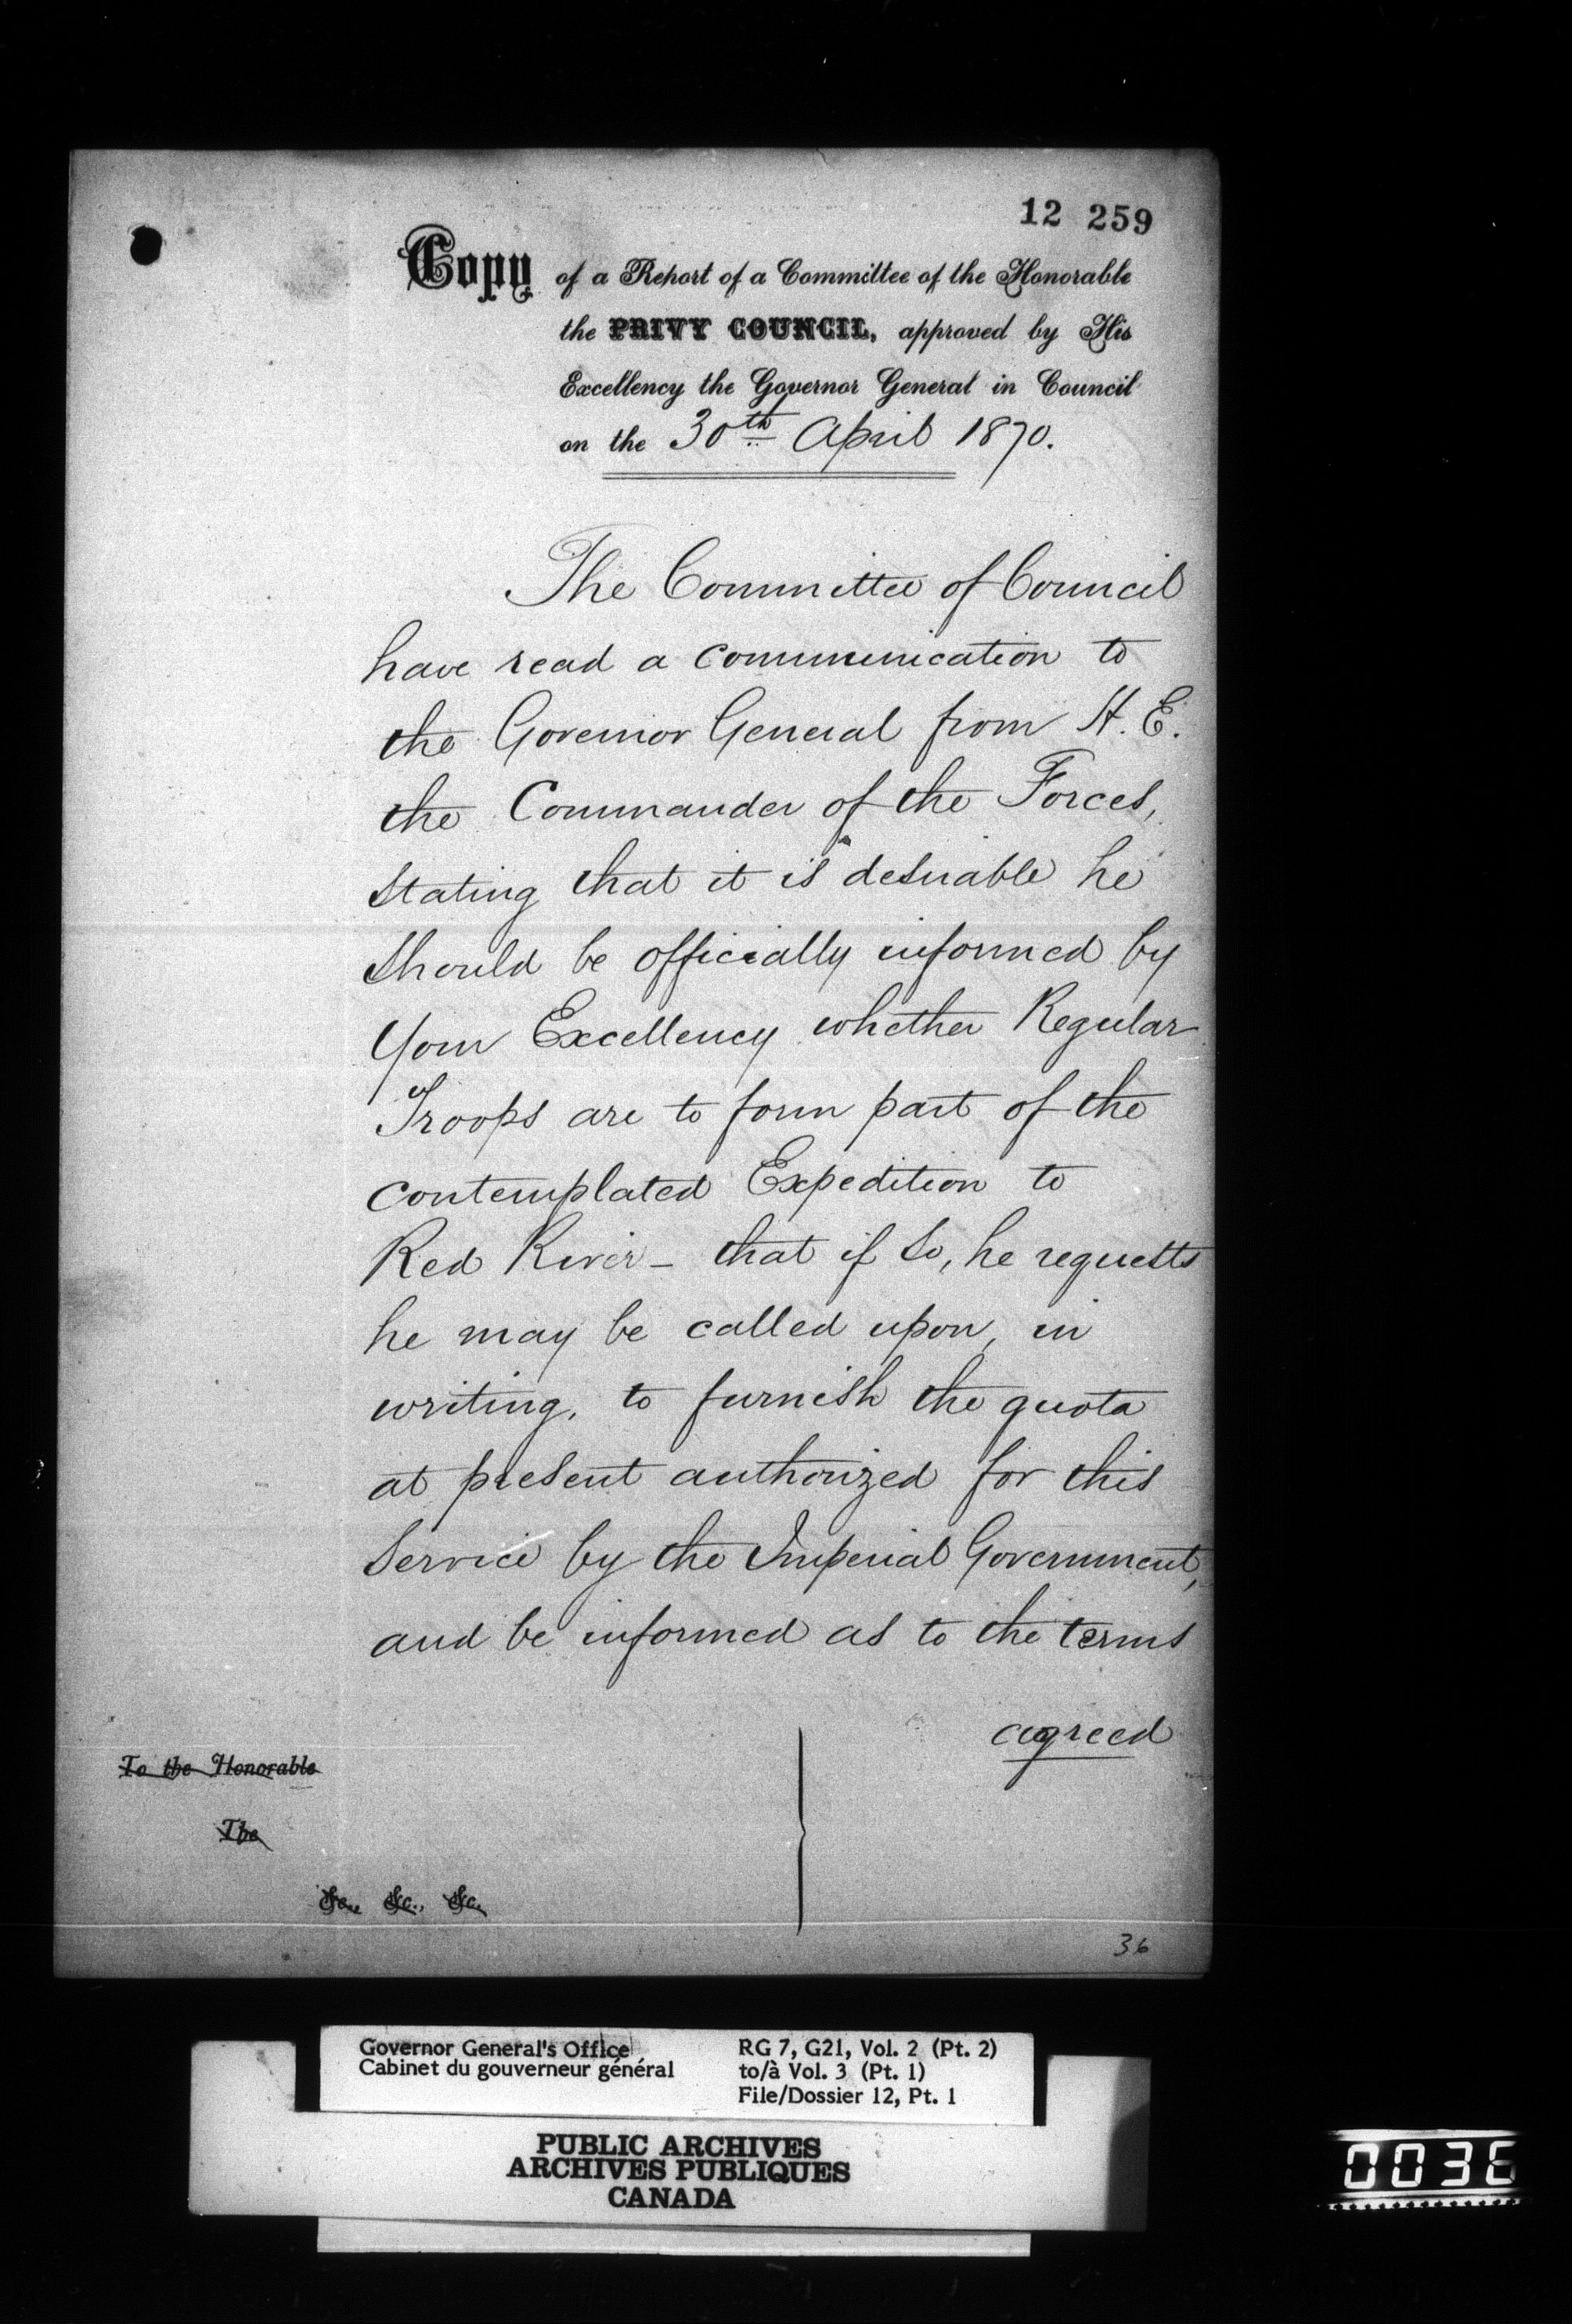 12 259
Copy of a Report of a Committee of the Honorable
the PRIVY COUNCIL, approved by His
Excellency the Governor General in Council
on the 30th April 1870.
The Committee of Council
have read a communication to
the Governor General from H. E.
the Commander of the Forces,
stating that it is desirable he
should be officially informed by
Your Excellency whether Regular
Troops are to form part of the
contemplated Expedition to
Red River - that if so, he requests
he may be called upon, in
writing, to furnish the quota
at present authorized for this
Service by the Imperial Government,
and be informed as to the terms
agreed
To the Honorable
The
&c., &c., &c.
36
Governor General's Office
Cabinet du gouverneur général
RG 7, G21, Vol. 2 (Pt. 2)
to/à Vol. 3 (Pt. 1)
File/Dossier 12, Pt. 1
PUBLIC ARCHIVES
ARCHIVES PUBLIQUES
CANADA
0036